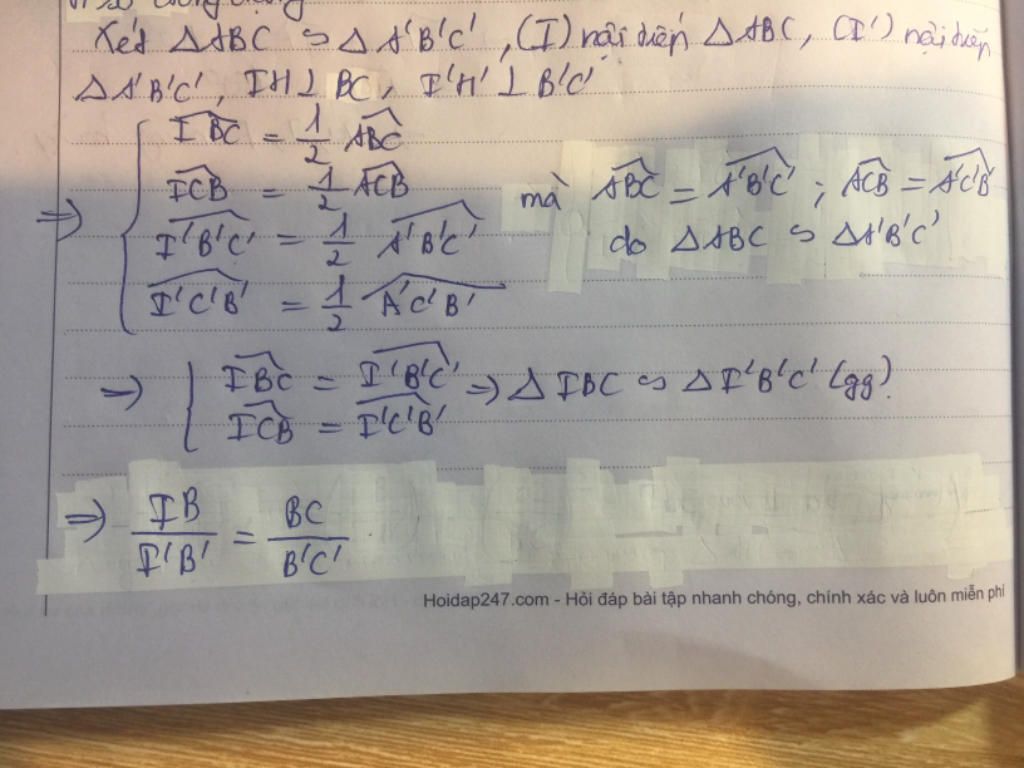 Xét ΔABC ∽ ΔA'B'C', (I) nội tiếp ΔABC, (I') nội tiếp
ΔA'B'C', IH⊥BC, I'H'⊥B'C'
⇒ { \widehat{IBC} = 1/2 \widehat{ABC}
\widehat{ICB} = 1/2 \widehat{ACB} mà \widehat{ABC} = \widehat{A'B'C'} ; \widehat{ACB} = \widehat{A'C'B'}
\widehat{I'B'C'} = 1/2 \widehat{A'B'C'} do ΔABC ∽ ΔA'B'C'
\widehat{I'C'B'} = 1/2 \widehat{A'C'B'}
⇒ { \widehat{IBC} = \widehat{I'B'C'} ⇒ ΔIBC ∽ ΔI'B'C' (gg).
\widehat{ICB} = \widehat{I'C'B'}
⇒ IB/I'B' = BC/B'C'
Hoidap247.com - Hỏi đáp bài tập nhanh chóng, chính xác và luôn miễn phí